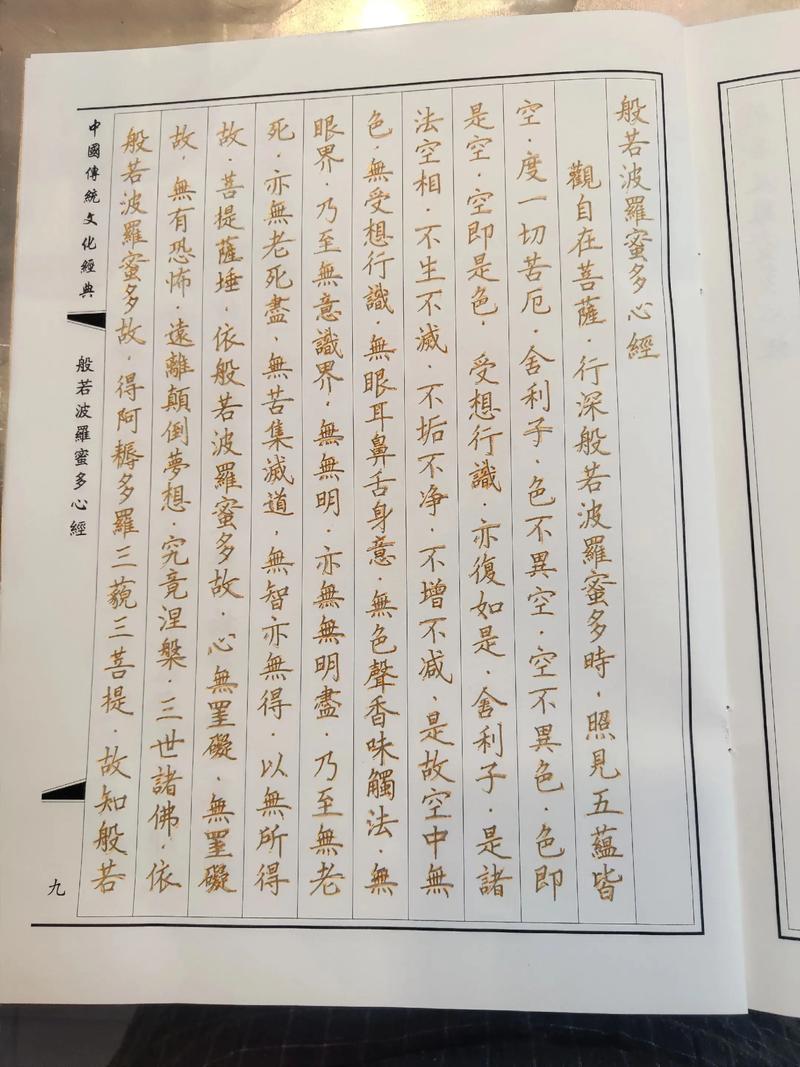 般若波羅蜜多心經
觀自在菩薩．行深般若波羅蜜多時，照見五蘊皆
空．度一切苦厄．舍利子．色不異空．空不異色．色即
是空．空即是色．受想行識．亦復如是．舍利子．是諸
法空相．不生不滅．不垢不净．不增不减．是故空中無
色．無受想行識．無眼耳鼻舌身意．無色聲香味觸法．無
眼界．乃至無意識界．無無明．亦無無明盡．乃至無老
死．亦無老死盡．無苦集滅道．無智亦無得．以無所得
故．菩提薩埵．依般若波羅蜜多故．心無罣礙．無罣礙
故．無有恐怖．遠離顛倒夢想．究竟涅槃．三世諸佛．依
般若波羅蜜多故．得阿耨多羅三藐三菩提．故知般若
中國傳統文化經典
般若波羅蜜多心經
九